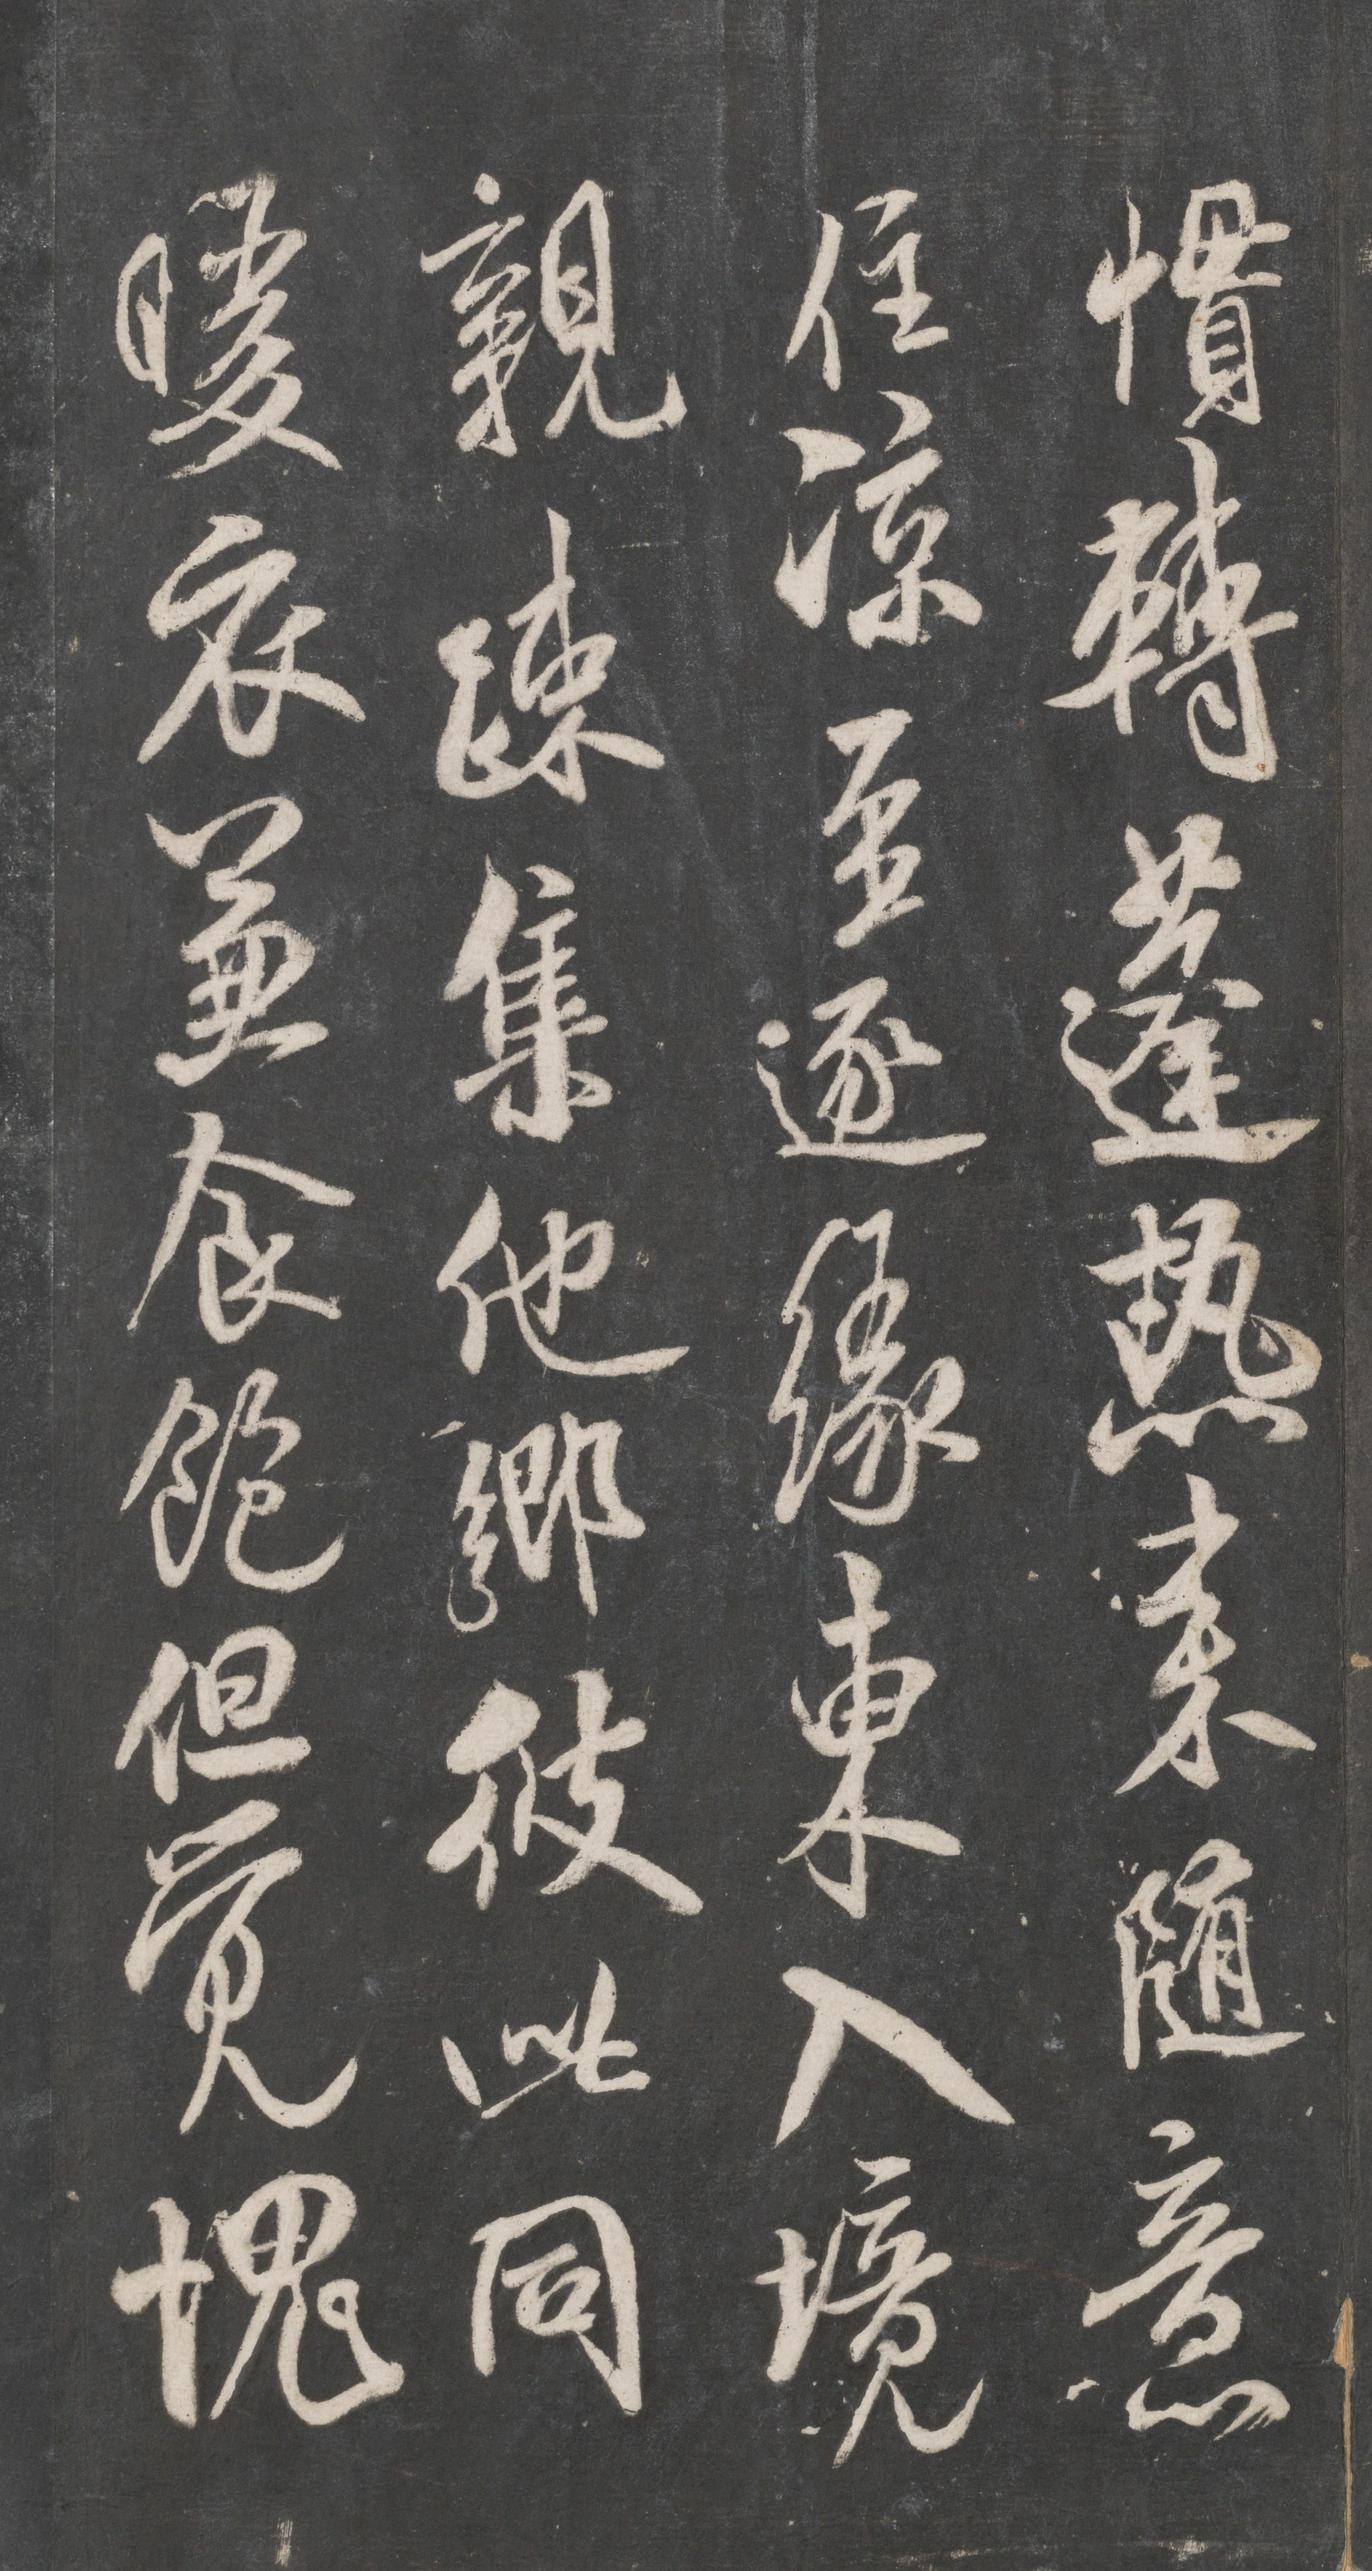 慣轉蓬熱来隨意
住涼至逐緣東入境
親踈集他鄉彼此同
暖衣兼食飽但覺愧